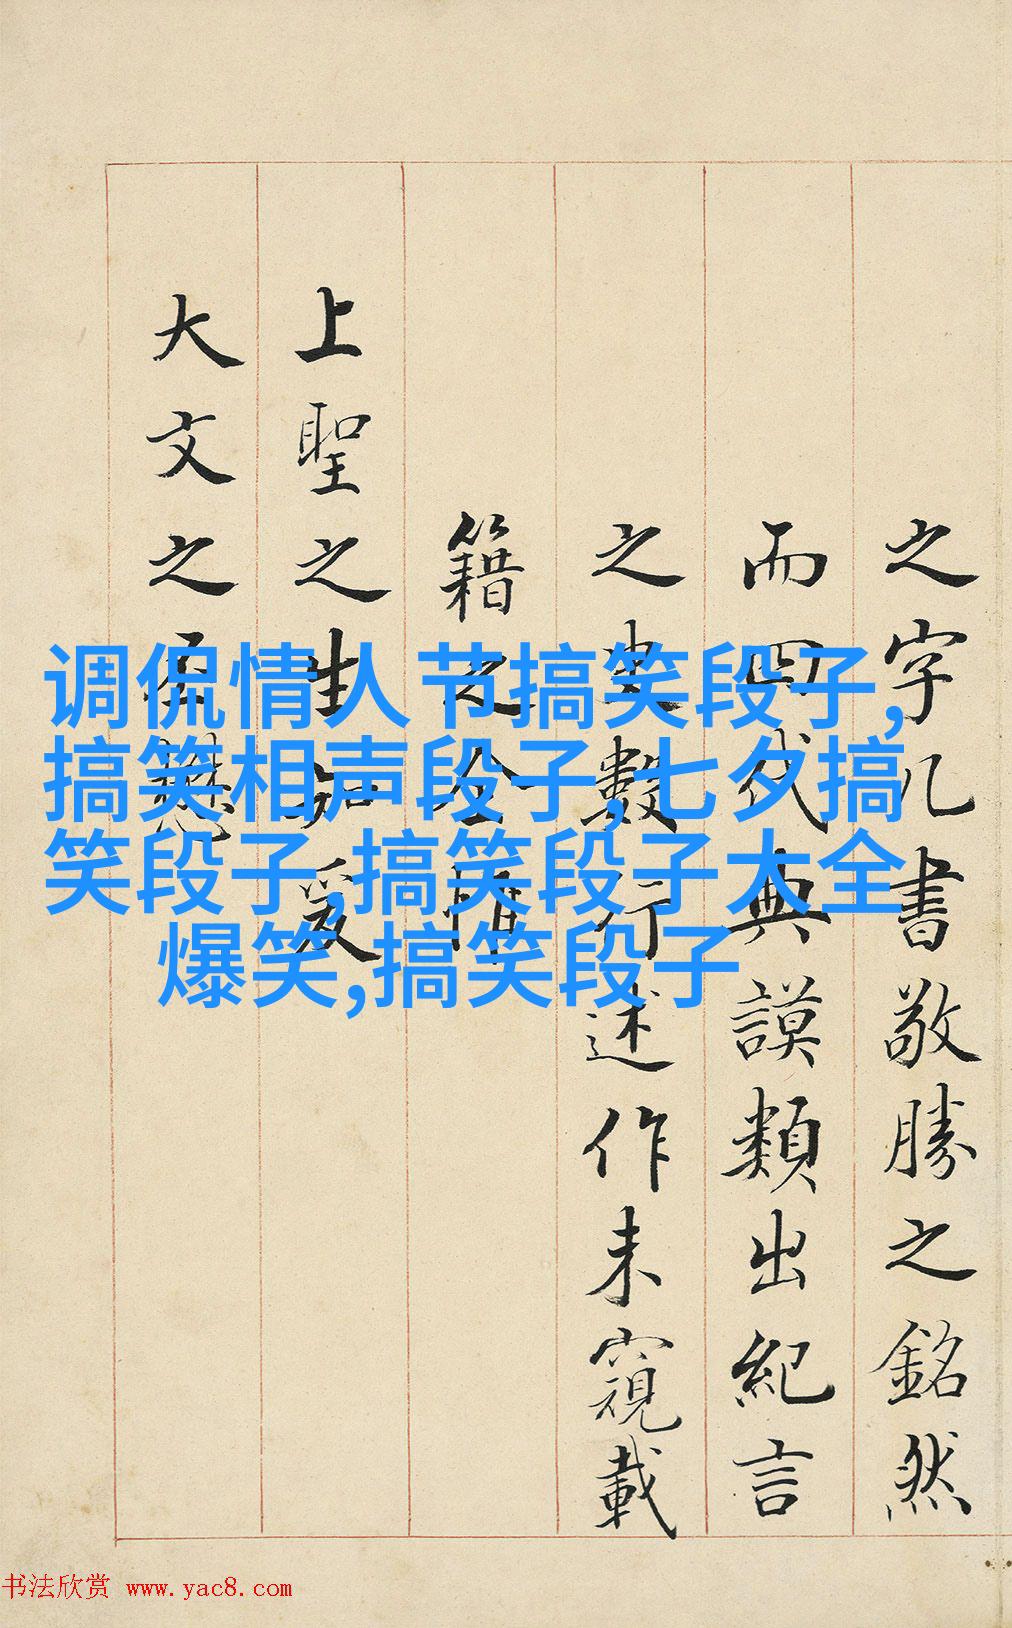 之字几書敬勝之銘然
而四代典謨類出紀言
之史數行述作未窺載
籍之全惟
上聖之生知爰
大文之丕
调侃情人节搞笑段子,
搞笑相声段子,七夕搞
笑段子,搞笑段子大全
爆笑,搞笑段子
书法欣赏 www.yac8.com